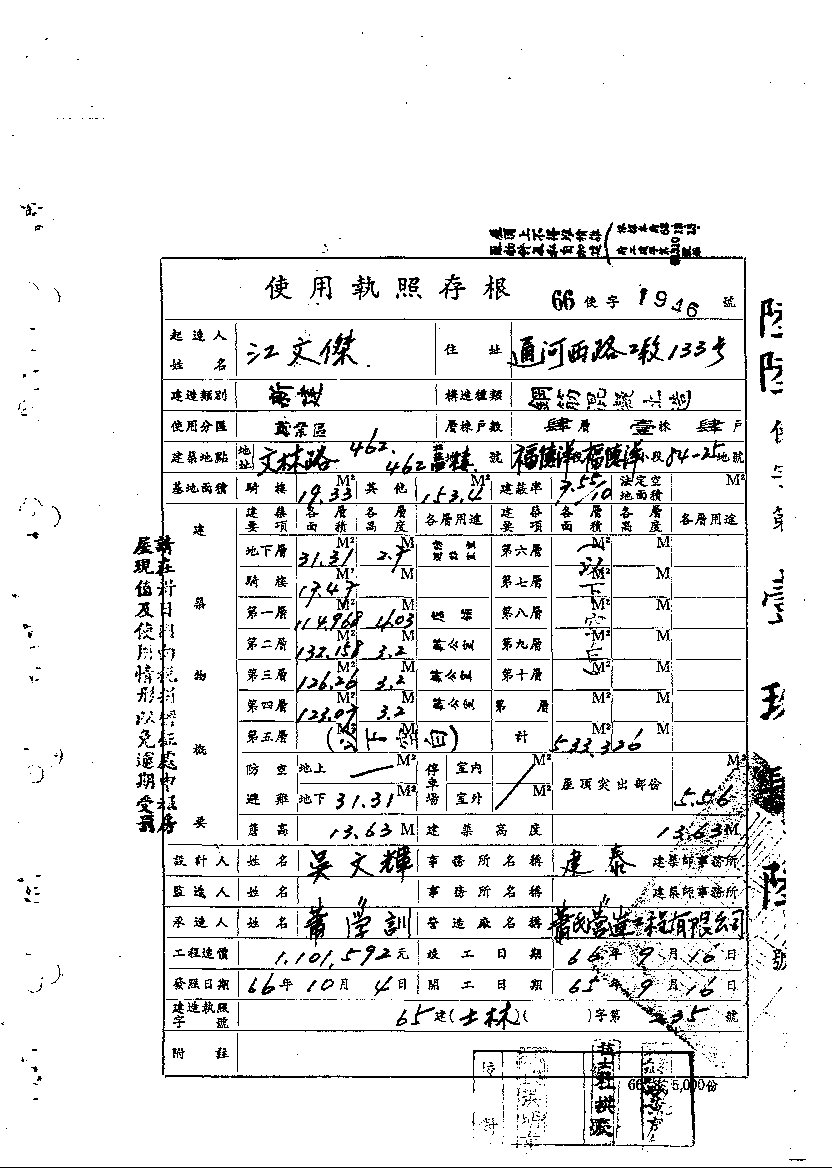 使用執照存根 66使字1946號
起造人姓名 江文傑 住址 通河西路2段133號
建造類別 新建 構造種類 鋼筋混凝土造
使用分區 商業區 層棟戶數 肆層 壹棟 肆戶
建築地點 地址 文林路 462. 462 號 福德洋段福德洋段84-25地號
基地面積 騎樓 19.33 M² 其他 153.4 M² 建蔽率 7.55/10 法定空地面積 M²
建築物概要
建築要項 各層面積 各層高度 各層用途 建築要項 各層面積 各層高度 各層用途
地下層 31.31 M² 2.7 M 第六層 M² M
騎樓 17.47 M² M 第七層 M² M
第一層 114.968 M² 4.03 M 第八層 M² M
第二層 132.158 M² 3.2 M 第九層 M² M
第三層 126.26 M² 3.2 M 第十層 M² M
第四層 123.07 M² 3.2 M 第 層 M² M
第五層 (以下空白) 計 533.326 M²
(以下空白)
防空避難 地上 M² 停車場 室內 M² 屋頂突出部份 5.56 M²
地下 31.31 M² 室外 M²
簷高 13.63 M 建築高度 13.63 M
設計人 姓名 吳文輝 事務所名稱 建泰 建築師事務所
監造人 姓名 〃 事務所名稱 〃 建築師事務所
承造人 姓名 蕭學訓 營造廠名稱 蕭氏營造工程有限公司
工程造價 1,101,592元 竣工日期 66年9月16日
發照日期 66年10月4日 開工日期 65年9月16日
建造執照字號 65建(士林)( )字第235號
附註
5,000份